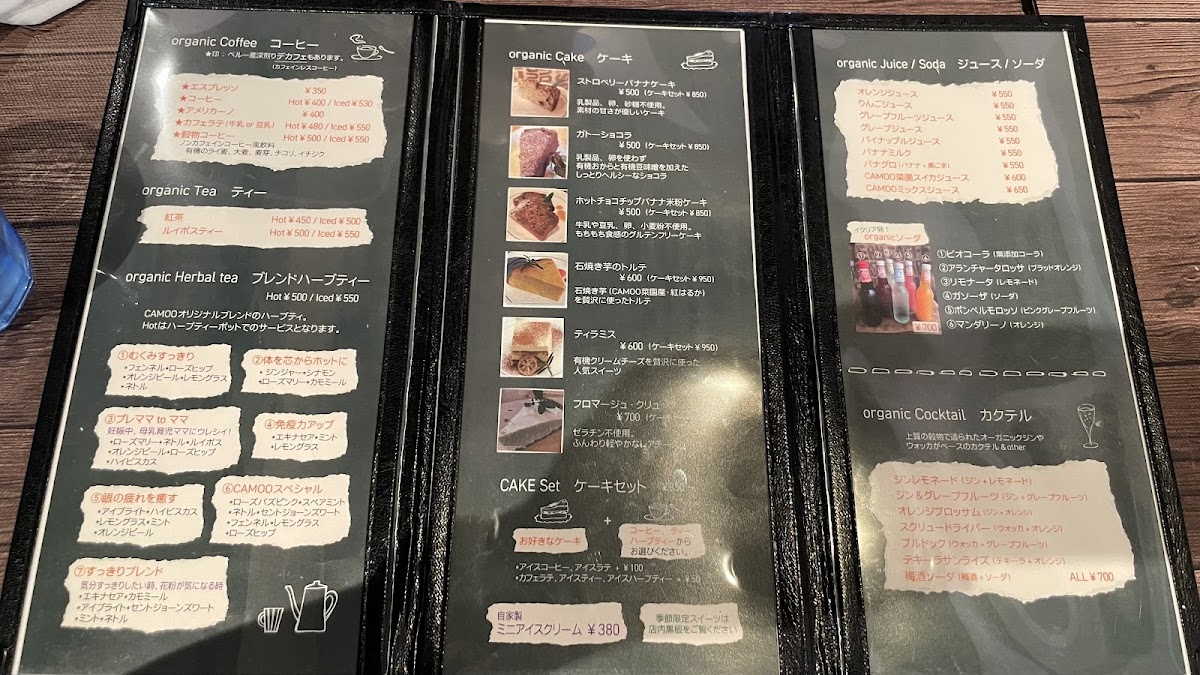 organic Coffee コーヒー
★印：ペルー産深煎りデカフェもあります。
(カフェインレスコーヒー)
★エスプレッソ ¥350
★コーヒー Hot¥400 / Iced¥530
★アメリカーノ ¥400
★カフェラテ(牛乳 or 豆乳) Hot¥480 / Iced¥550
★穀物コーヒー Hot¥500 / Iced¥550
ノンカフェインコーヒー風飲料
有機のライ麦、大麦、麦芽、チコリ、イチジク
organic Tea ティー
紅茶 Hot¥450 / Iced¥500
ルイボスティー Hot¥500 / Iced¥550
organic Herbal tea ブレンドハーブティー
Hot¥500 / Iced¥550
CAMOOオリジナルブレンドのハーブティ。
Hotはハーブティーポットでのサービスとなります。
①むくみすっきり
•フェンネル•ローズヒップ
•オレンジピール•レモングラス
•ネトル
②体を芯からホットに
•ジンジャー•シナモン
•ローズマリー•カモミール
③プレママ to ママ
妊娠中、母乳育児ママにウレシイ!
•ローズマリー•ネトル•ルイボス
•オレンジピール•ローズヒップ
•ハイビスカス
④免疫力アップ
•エキナセア•ミント
•レモングラス
⑤眼の疲れを癒す
•アイブライト•ハイビスカス
•レモングラス•ミント
•オレンジピール
⑥CAMOOスペシャル
•ローズバズピンク•スペアミント
•ネトル•セントジョーンズワート
•フェンネル•レモングラス
•ローズヒップ
⑦すっきりブレンド
気分すっきりしたい時、花粉が気になる時
•エキナセア•カモミール
•アイブライト•セントジョーンズワート
•ミント•ネトル
organic Cake ケーキ
ストロベリーバナナケーキ
¥500 (ケーキセット¥850)
乳製品、卵、砂糖不使用。
素材の甘さが優しいケーキ
ガトーショコラ
¥500 (ケーキセット¥850)
乳製品、卵を使わず
有機おからと有機豆味噌を加えた
しっとりヘルシーなショコラ
ホットチョコチップバナナ米粉ケーキ
¥500 (ケーキセット¥850)
牛乳や豆乳、卵、小麦粉不使用。
もちもち食感のグルテンフリーケーキ
石焼き芋のトルテ
¥600 (ケーキセット¥950)
石焼き芋(CAMOO菜園産・紅はるか)
を贅沢に使ったトルテ
ティラミス
¥600 (ケーキセット¥950)
有機クリームチーズを贅沢に使った
人気スイーツ
フロマージュ・クリュ
¥700 (ケー
ゼラチン不使用。
ふんわり軽やかなレア
CAKE Set ケーキセット
お好きなケーキ
+
コーヒー、ティー
ハーブティーから
お選びください。
•アイスコーヒー、アイスラテ + ¥100
•カフェラテ、アイスティー、アイスハーブティー + ¥50
自家製
ミニアイスクリーム ¥380
季節限定スイーツは
店内黒板をご覧ください
organic Juice / Soda ジュース / ソーダ
オレンジジュース ¥550
りんごジュース ¥550
グレープフルーツジュース ¥550
グレープジュース ¥550
パイナップルジュース ¥550
バナナミルク ¥550
バナグロ(バナナ+黒ごま) ¥550
CAMOO菜園スイカジュース ¥600
CAMOOミックスジュース ¥650
イタリア発!
organicソーダ
①②③④⑤⑥
¥700
①ビオコーラ (無添加コーラ)
②アランチャータロッサ (ブラッドオレンジ)
③リモナータ (レモネード)
④ガソーザ (ソーダ)
⑤ポンペルモロッソ (ピンクグレープフルーツ)
⑥マンダリーノ (オレンジ)
organic Cocktail カクテル
上質の穀物で造られたオーガニックジンや
ウォッカがベースのカクテル&other
ジンレモネード (ジン+レモネード)
ジン&グレープフルーツ (ジン+グレープフルーツ)
オレンジブロッサム (ジン+オレンジ)
スクリュードライバー (ウォッカ+オレンジ)
ブルドック (ウォッカ+グレープフルーツ)
テキーラサンライズ (テキーラ+オレンジ)
梅酒ソーダ (梅酒+ソーダ) ALL¥700